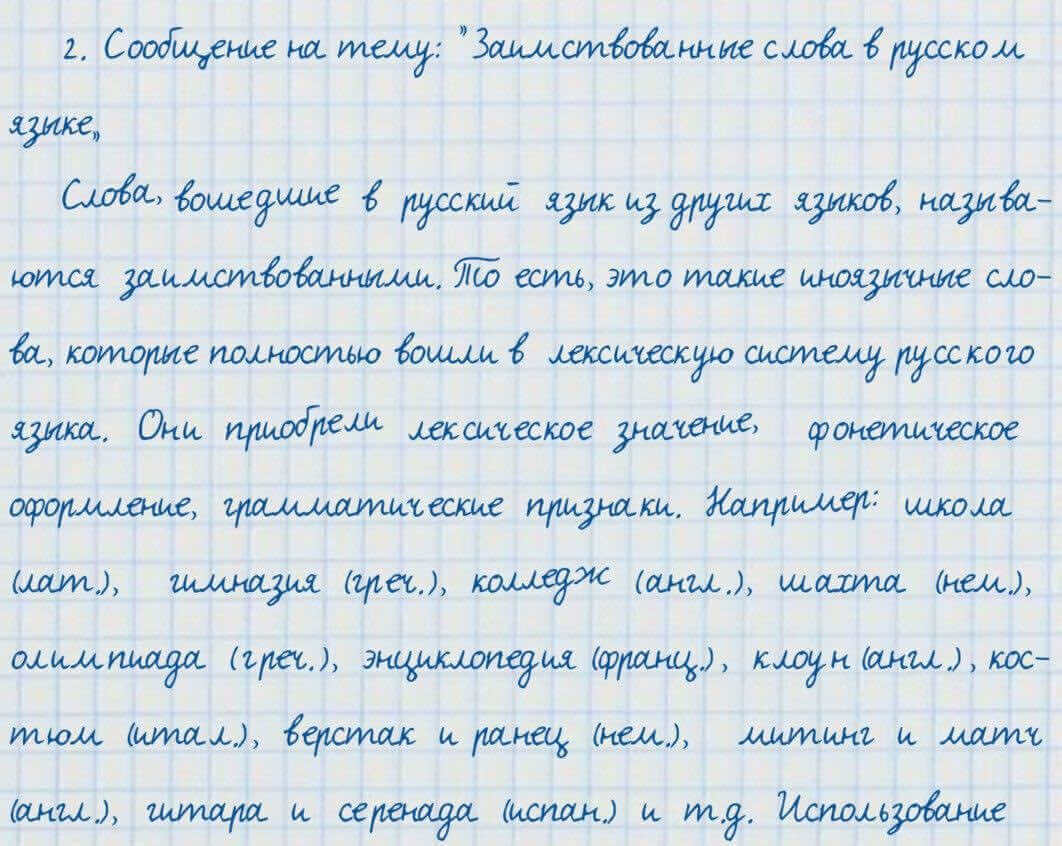 2. Сообщение на тему: "Заимствованные слова в русском
языке„
Слова, вошедшие в русский язык из других языков, называ-
ются заимствованными. То есть, это такие иноязычные сло-
ва, которые полностью вошли в лексическую систему русского
языка. Они приобрели лексическое значение, фонетическое
оформление, грамматические признаки. Например: школа
(лат.), гимназия (греч.), колледж (англ.), шахта (нем.),
олимпиада (греч.), энциклопедия (франц.), клоун (англ.), кос-
тюм (итал.), верстак и ранец (нем.), митинг и матч
(англ.), гитара и серенада (испан.) и т.д. Использование